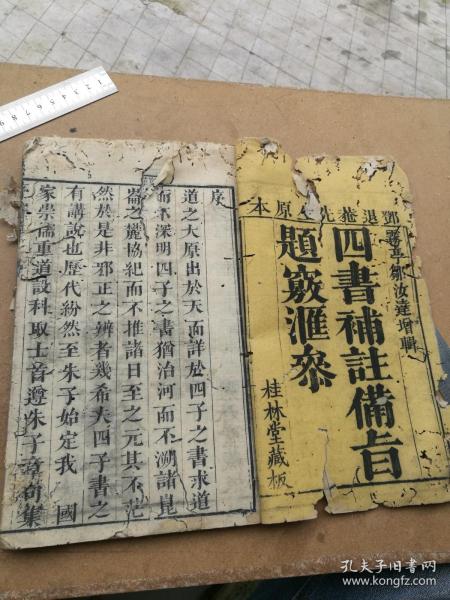 鄧退菴先生原本
鄒汝達增輯
四書補註備旨
題竅滙參
桂林堂藏板
序
道之大原出於天而詳於四子之書求道
而不深明四子之書猶治河而不溯諸崑
崙之麓協紀而不推諸日至之元其不茫
然於是非邪正之辨者幾希夫四子書之
有講說也歷代紛然至朱子始定我 國
家崇儒重道設科取士音遵朱子章句集
孔夫子旧书网
book.kongfz.com